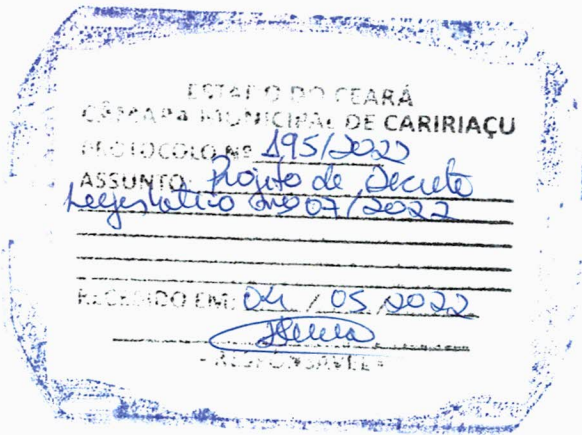 ESTADO DO CEARÁ
CÂMARA MUNICIPAL DE CARIRIAÇU
PROTOCOLO Nº 195/2022
ASSUNTO: Projeto de Decreto
Legislativo nº 07/2022
RECEBIDO EM: 04 / 05 /2022
- RESPONSÁVEL -